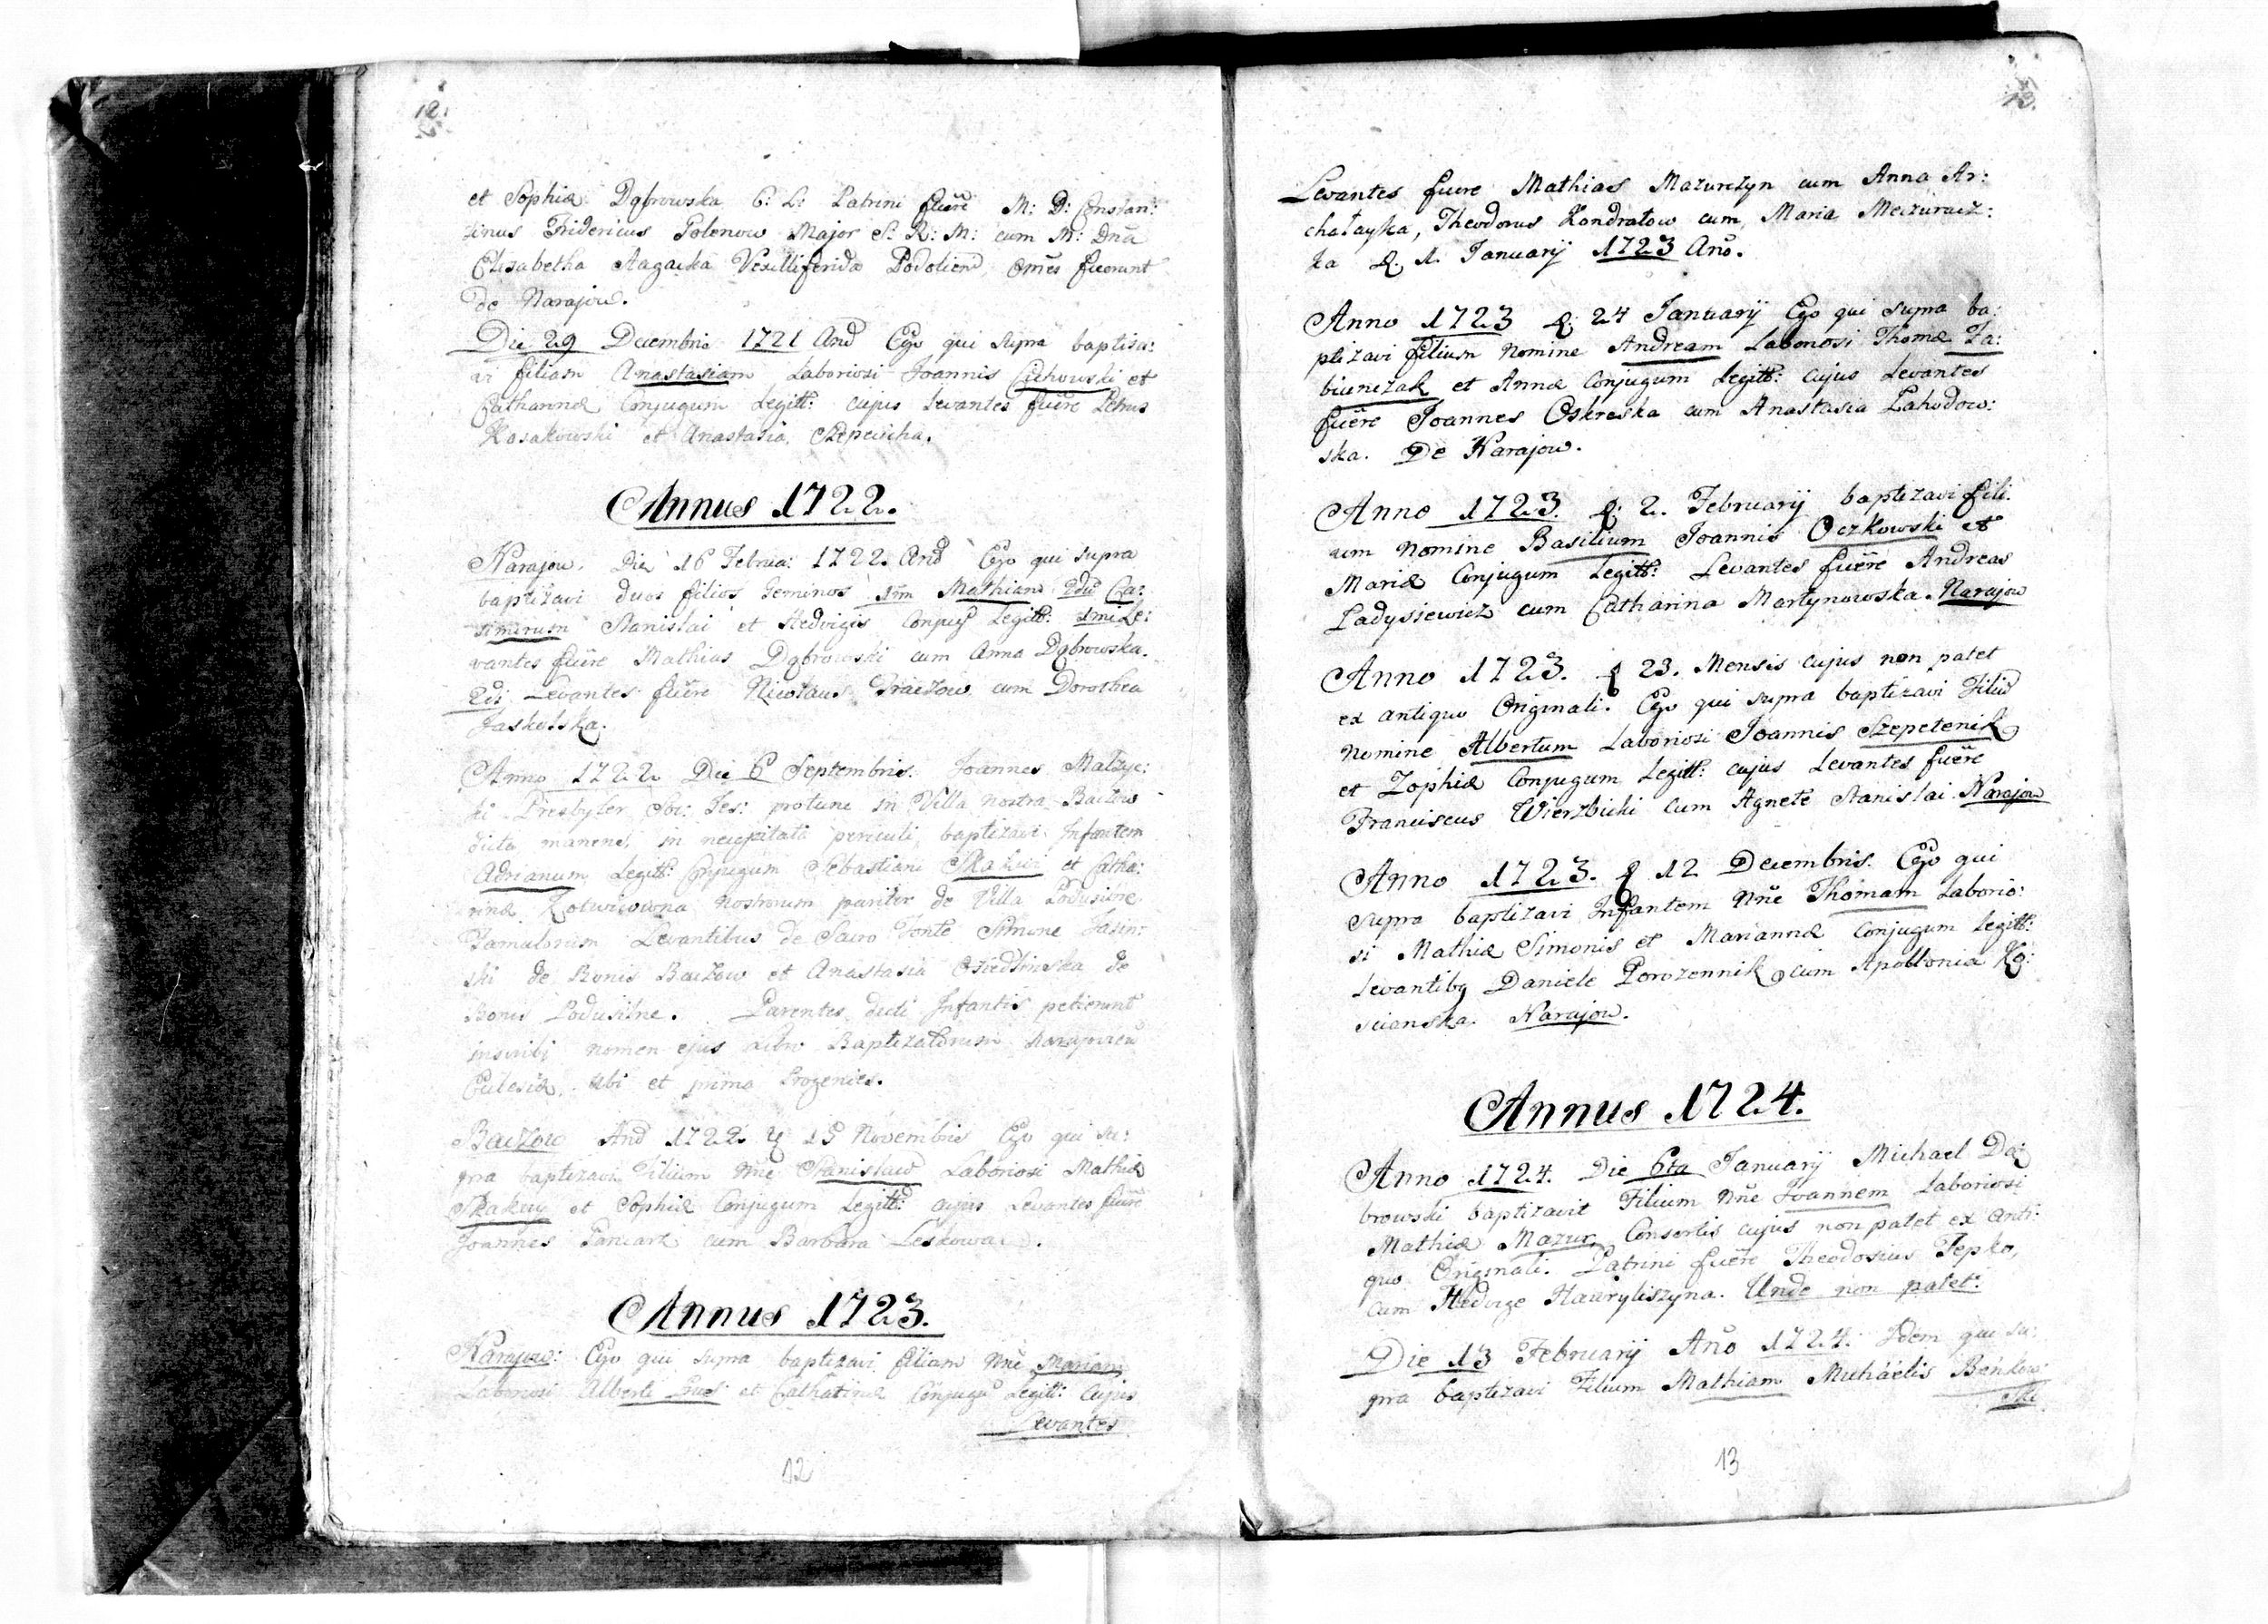 12.
et Sophiæ Dąbrowska C: L: Patrini fuere M: D: Constan:
tinus Fridericus Polenow Major S. R: M: cum M: Dna
Elisabetha Vexilliferida Podoliens omēs fuerunt
de Narajow.
Die 29 Decembris 1721 Anō Ego qui supra baptiza:
vi filiam Anastasiam Laboriosi Joannis Cichowski et
Catharinæ Conjugum Legitt: cujus Levantes fuēre Petrus
Kosakowski et Anastasia.
Annus 1722.
Narajow. Die 16 Februa: 1722. Anō Ego qui supra
baptizavi duos filios Geminos 1mm Mathiam 2dū Ca:
simirum Stanislai et Hedvigis Conjug Legitt: 1mi Le:
vantes fuēre Mathias Dąbrowski cum Anna Dąbrowska.
2di Levantes fuēre Nicolaus cum Dorothea
Jaskulska.
Anno 1722 Die 6 Septembris. Joannes
ki Presbyter Soc: Jes: protunc in Villa nostra Baczow
dicta manens, in necessitati periculi baptizavi Infantem
Adrianum Legitt: Conjugum Sebastiani Skakuy et Catha:
rinæ nostrorum pariter de Villa Podusilne
Famulorum Levantibus de Sacro Fonte Simone Jasin:
ski de Bonis Baczow et Anastasia de
Bonis Podusilne. Parentes dicti Infantis petierunt
inscribi nomen ejus Libro Baptizatorum Narajovien
Eclesiæ, ubi et prima Progenies.
Baczow Anō 1722. 15 Novembris Ego qui su:
pra baptizavi Filium Nñe Stanislaū Laboriosi Mathiæ
Skakuy et Sophiæ Conjugum Legitt: cujus Levantes fuēre
Joannes cum Barbara
Annus 1723.
Narajow: Ego qui supra baptizavi filiam Nñe Mariam
Laboriosi Alberti et Catharinæ Conjugū Legitt: Cujus
Levantes
12
13.
Levantes fuere Mathias Mazurczyn cum Anna Ar:
chałayka, Theodorus Kondratow cum Maria Meczuracz:
ka D. 1. Januarij 1723 Anō.
Anno 1723 D: 24 Januarij Ego qui supra ba:
ptizavi filium Nomine Andream Laboriosi Thomæ Za:
biunczak et Annæ Conjugum Legitt: cujus Levantes
fuēre Joannes Oskreska cum Anastasia Lahodow:
ska. De Narajow.
Anno 1723. D: 2. Februarij baptizavi fili:
um Nomine Basilium Joannis Oczkowski et
Mariæ Conjugum Legitt: Levantes fuēre Andreas
Ładysiewicz cum Catharina Martynowska. Narajow
Anno 1723. D 23. Mensis cujus non patet
ex antiquo Originali. Ego qui supra baptizavi Filiū
Nomine Albertum Laboriosi Joannis Szepetenik
et Zophiæ Conjugum Legitt: cujus Levantes fuēre
Franciscus Wierzbicki cum Agnete Stanislai Narajow
Anno 1723. D 12 Decembris. Ego qui
supra baptizavi Infantem Nñe Thomam Laborio:
si Mathiæ Simonis et Mariannæ Conjugum Legitt:
Levantibq Daniele Porozennik cum Apollonia Ko:
scianska. Narajow.
Annus 1724.
Anno 1724. Die 6ta Januarij Michael Dą:
browski baptizavit Filium Nñe Joannem Laboriosi
Mathiæ Mazur, Consortis cujus non patet ex Anti:
quo Originali. Patrini fuēre Theodosius Tepko,
cum Hedvige Hawryliszyna. Unde non patet.
Die 13 February Anō 1724. Idem qui su:
pra baptizavi Filium Mathiam Michäelis Bańkow:
ski
13